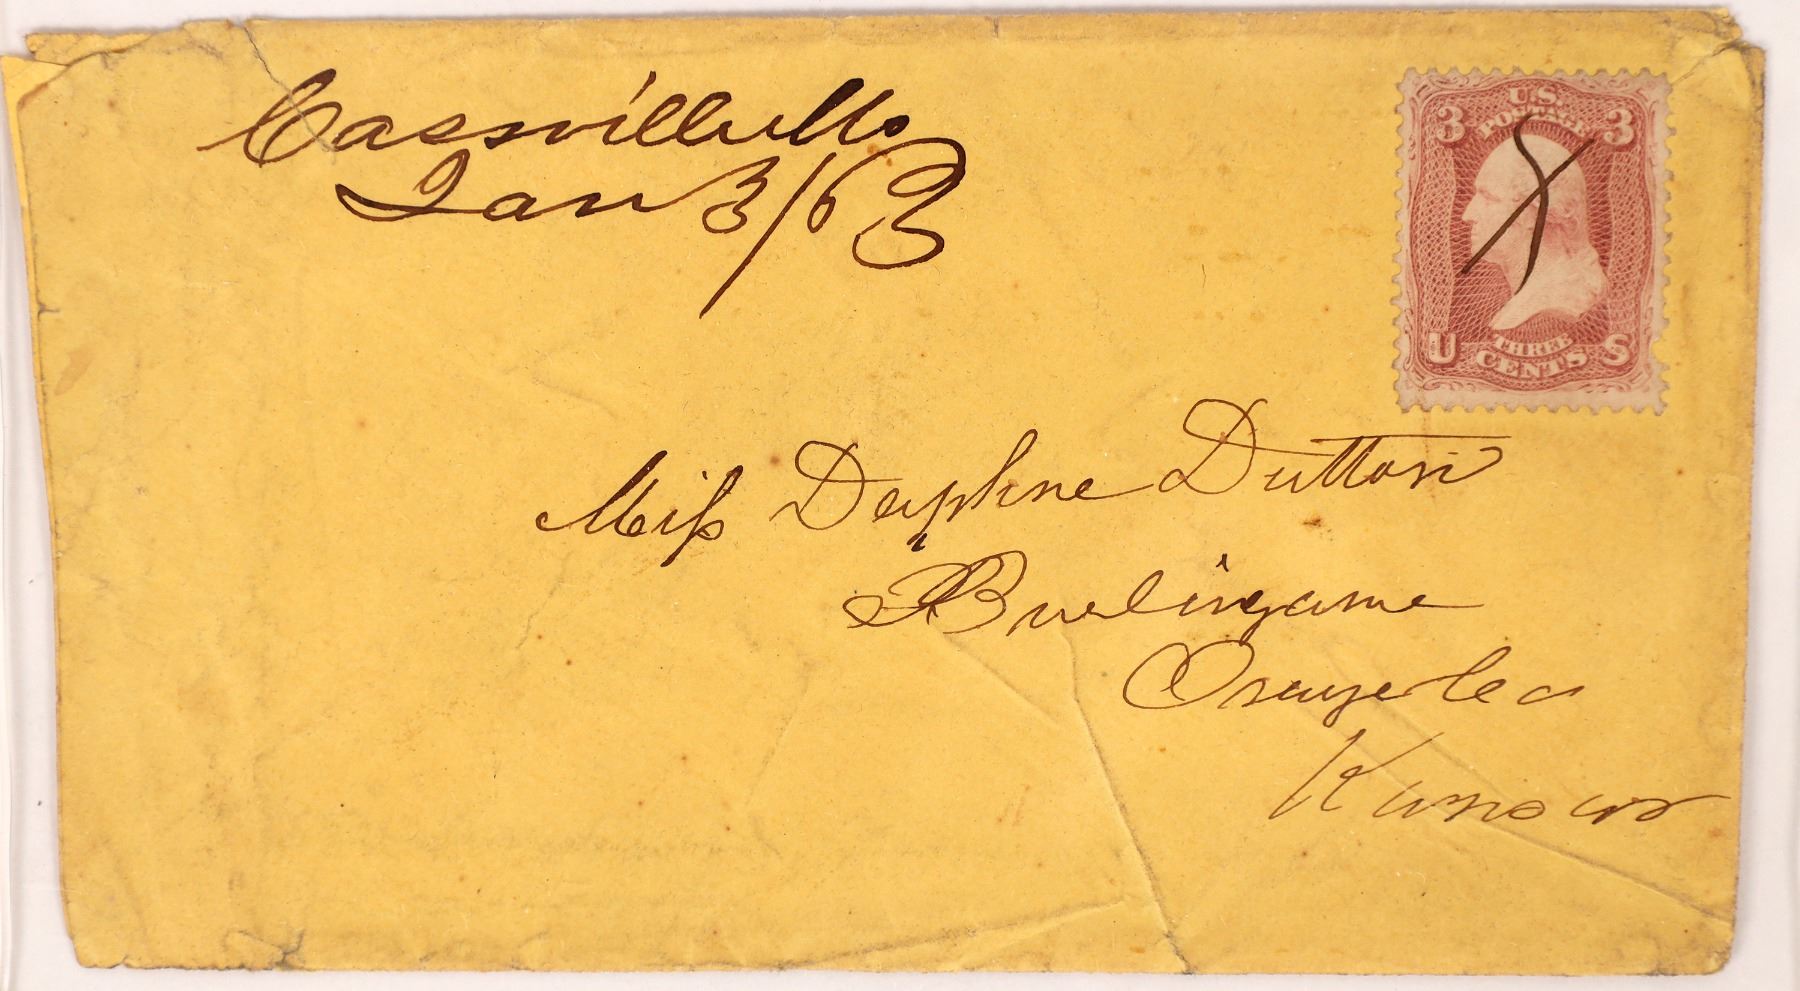 Cassville Mo
Jan 3/63
U.S.
POSTAGE
3 3
U S
THREE
CENTS
Miss Daphne Dutton
Burlingame
Osage Co
Kansas